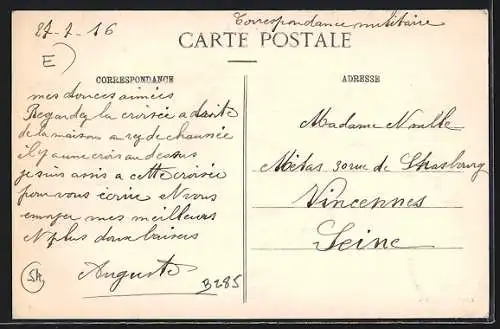 27-7-16
Correspondance militaire
CARTE POSTALE
E)
CORRESPONDANCE
mes douces aimées
Regardez la croisée a droite
de la maison au rez de chaussée
il y a une croix au dessus
je suis assis a cette croisée
pour vous écrire et vous
envoyer mes meilleurs
et plus doux baisers
Auguste
SA
B285
ADRESSE
Madame
30 rue de Strasbourg
Vincennes
Seine